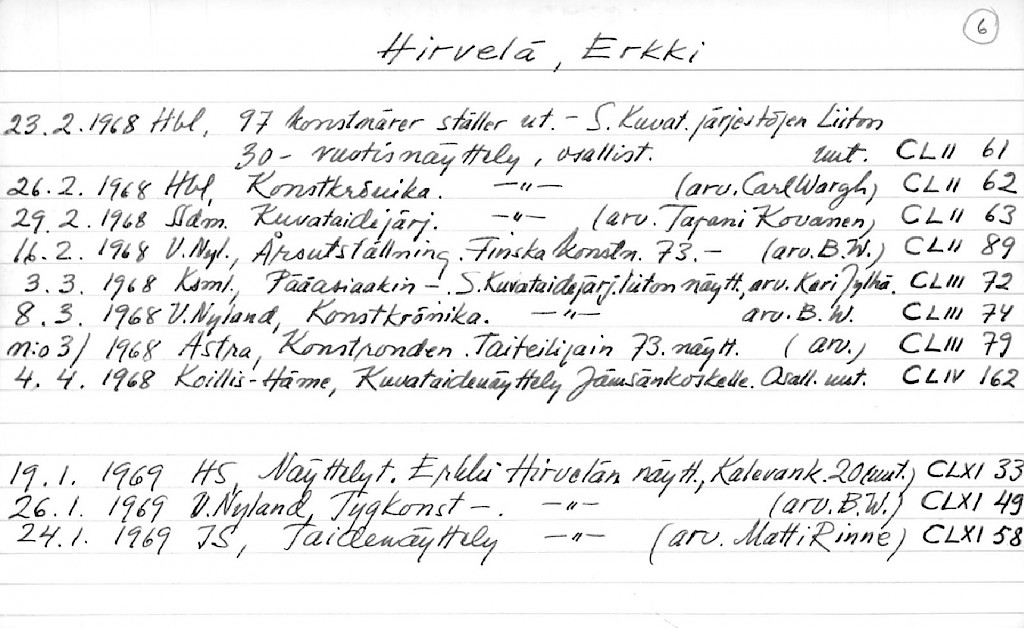 6
Hirvelä, Erkki
23.2.1968 Hbl, 97 konstnärer ställer ut. - S. Kuvat. järjestöjen Liiton
30-vuotisnäyttely, osallist. uut. CLII 61
26.2.1968 Hbl, Konstkrönika. -"- (arv. Carl Wargh) CLII 62
29.2.1968 Ssdm. Kuvataidejärj. -"- (arv. Tapani Kovanen) CLII 63
16.2.1968 V.Nyl., Årsutställning. Finska konstn. 73.- (arv. B.W.) CLII 89
3.3.1968 Ksml., Pääasiaakin -. S. Kuvataidejärj. liiton näytt., arv. Kari Jylhä. CLIII 72
8.3.1968 V.Nyland, Konstkrönika. -"- arv. B.W. CLIII 74
n:o 3/ 1968 Astra, Konstronden. Taiteilijain 73. näytt. ( arv.) CLIII 79
4.4.1968 Koillis-Häme, Kuvataidenäyttely Jämsänkoskelle. Osall. uut. CLIV 162
19.1.1969 HS, Näyttelyt. Erkki Hirvelän näytt., Kalevank. 20 (uut.) CLXI 33
26.1.1969 V.Nyland, Tygkonst -. -"- (arv. B.W.) CLXI 49
24.1.1969 IS, Taidenäyttely -"- (arv. Matti Rinne) CLXI 58